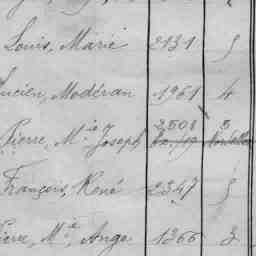 Louis, Marie 2131 5
Lucien, Modéran 1961 4
2501 3
Pierre, Mie Joseph
François, René 2347 5
Pierre, Mie, Ange 1366 3